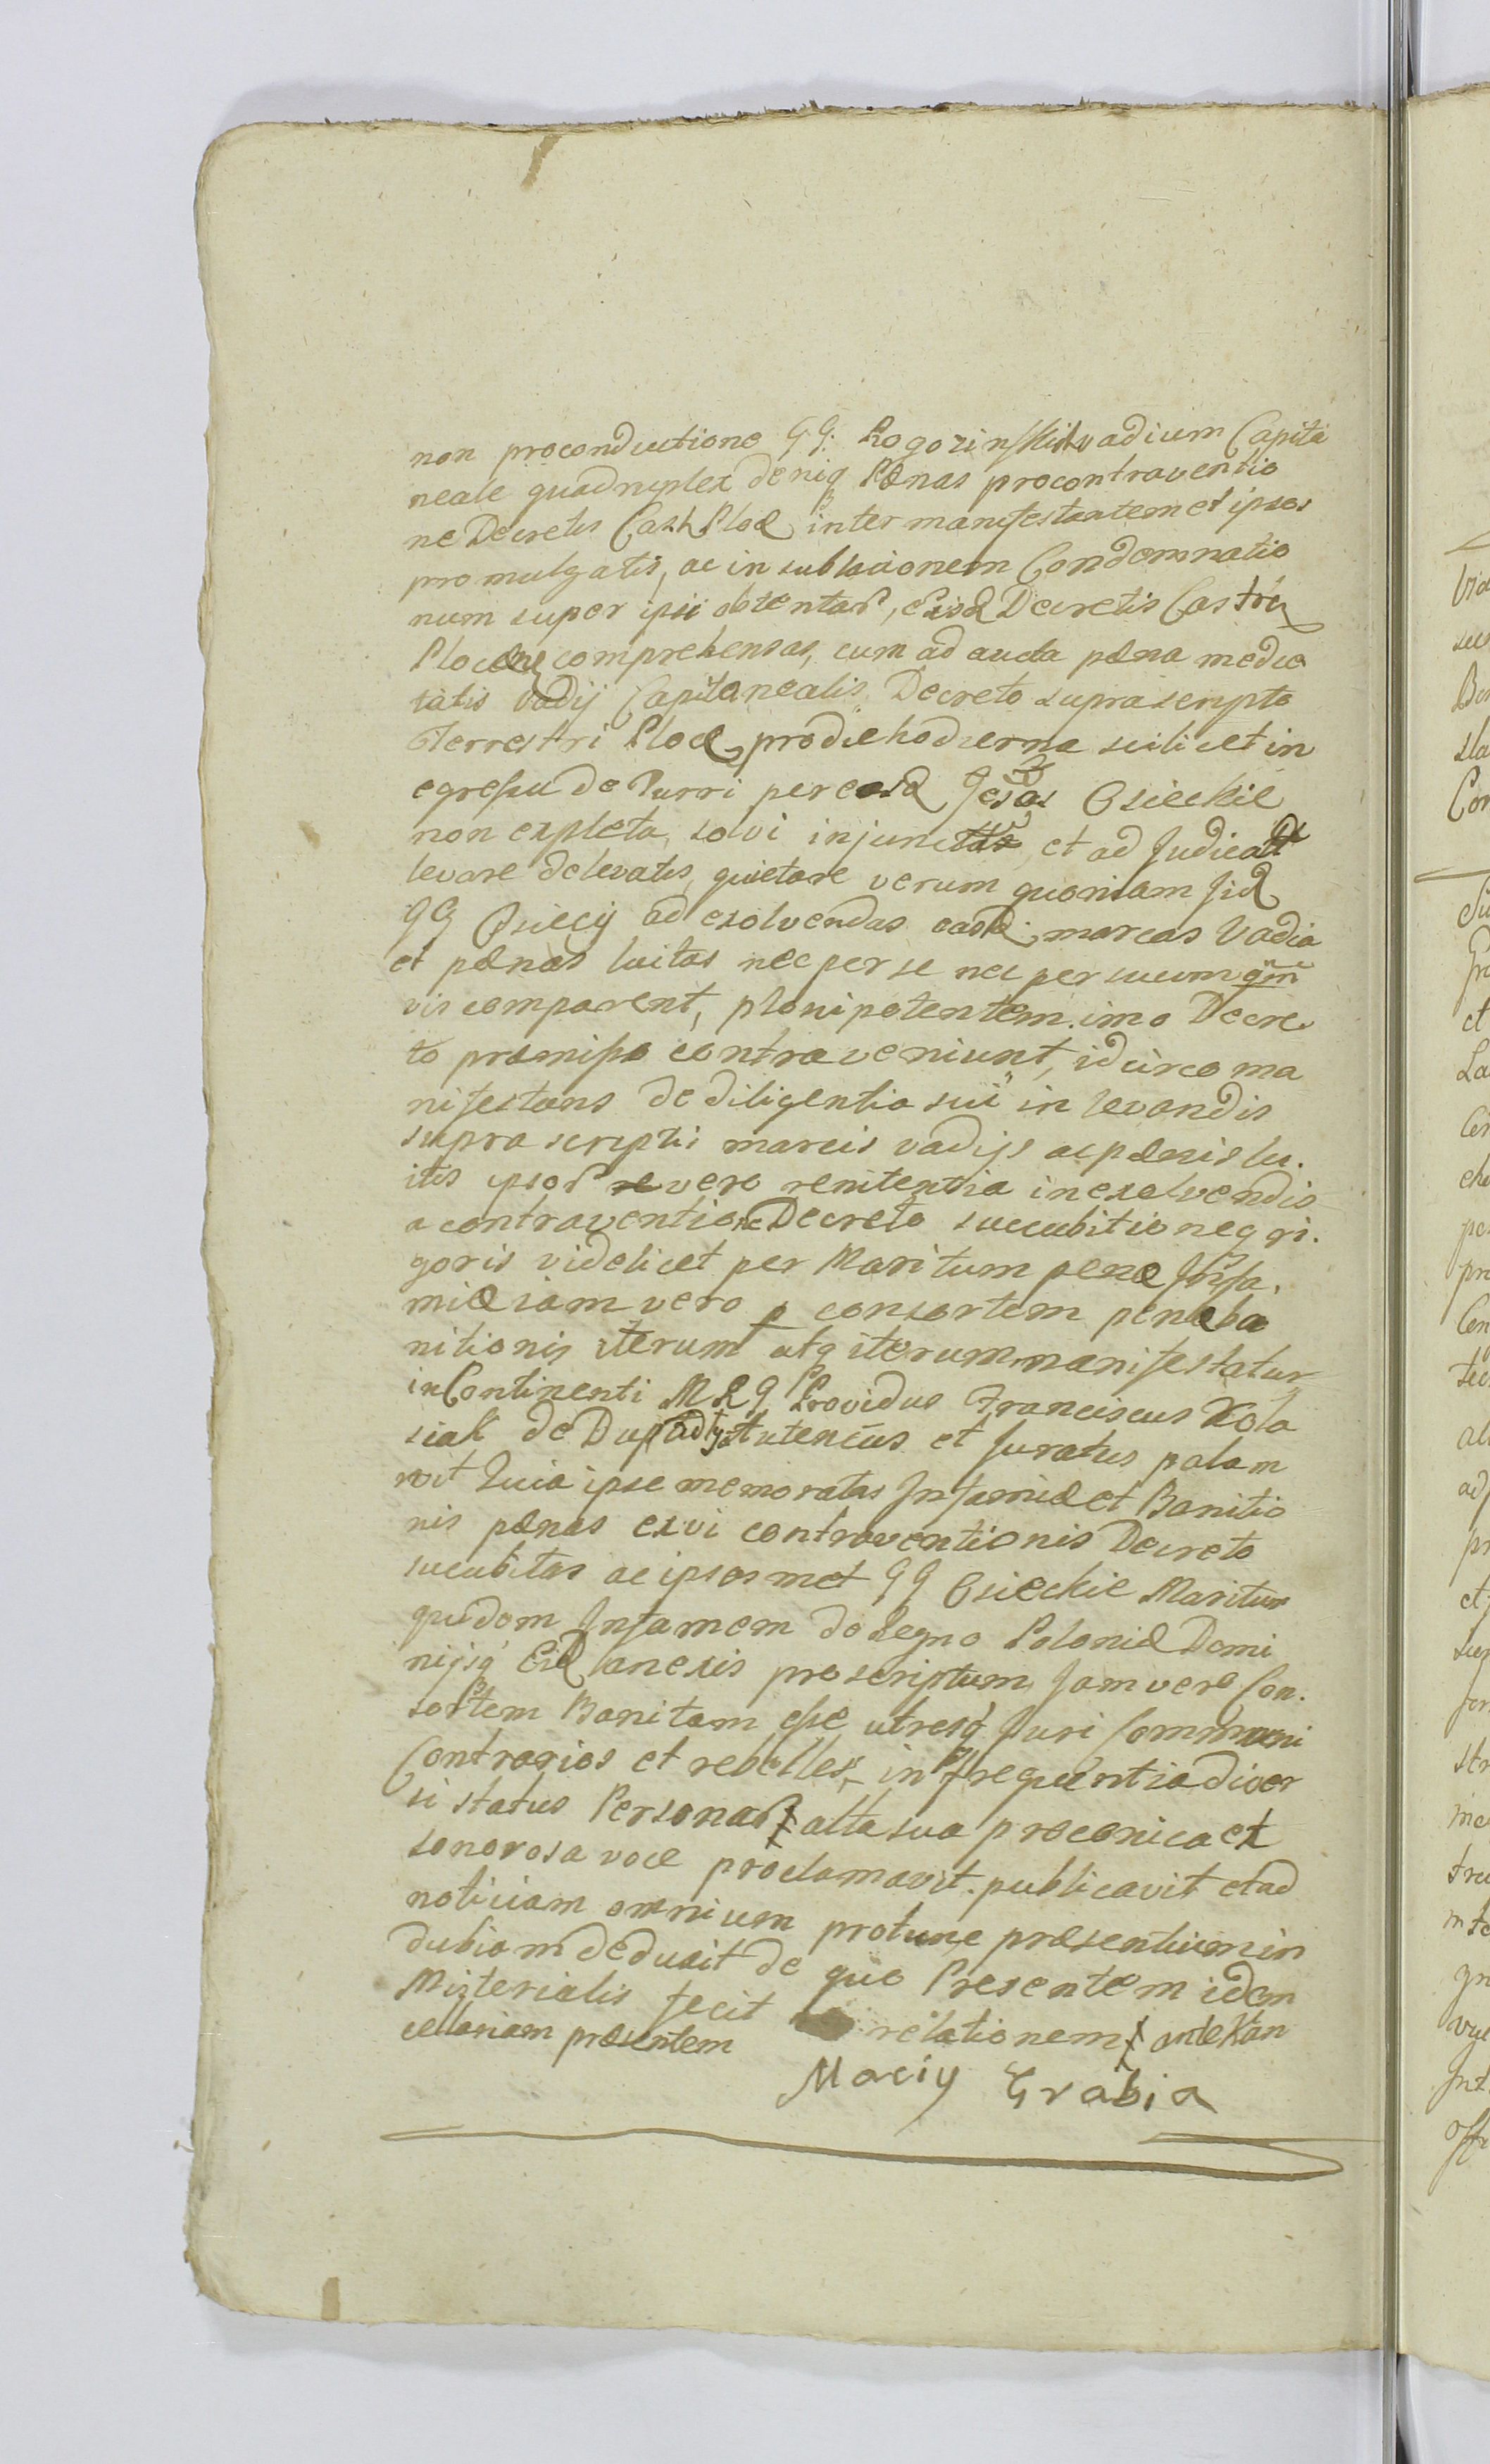 non proconductione GG. Rogozinskich vadium Capita
neale quadruplex deniq Pænas procontraventio
ne Decretis Cast Ploc inter manifestantem et ipsos
promulgatis, ac in sublationem Condemnatio
num super ipsi obtentar, Eisd Decretis Castr
Plocen comprehensas, cum ad aucta pæna medie
tatis vadij Capitanealis Decreto suprascripto
Terrestri Ploc prodie hodierna scilicet in
egressu de Turri per eosd Gesos Osieckie
non expleta, solvi injuncta et ad Judicat
levare delevatis, quietare verum quoniam jid
GG Osiecij ad exolvendas easd marcas Vadia
et pænas luitas nec per se nec per suum qm
vis comparent, plenipotentem imo Decre
to præmisso contraveniunt, idcirco ma
nifestans de diligentia sui in levandis
supra scriptis marcis vadijs ac pænis lu.
itis ipsor vero renitentia in exolvendis
a contraventione Decreto succubitioneq ri.
goris videlicet per Maritum penæ Infa.
miæ iam vero p consortem penæ ba
nitionis iterum atq iterum manifestatur
in Continenti M R G Providus Franciscus Kola
siak de Du autenticus et Juratus palam
vit Quia ipse memoratas Infamiæ et Banitio
nis pænas ex vi contraventionis Decreto
sucubitas ac ipsosmet GG Osieckie Maritum
quidem Infamem de Regno Poloniæ Domi
nijsq Eid anexis proscriptum Jam vero Con.
sortem Banitam esse utresq Juri Communi
Contrarios et rebelles, in frequentia diver
si status Personar alta sua præconica et
sonorosa voce proclamavit. publicavit et ad
notitiam omnium protunc præsentium in
dubiam deduxit de quo Presentem idem
Misterialis fecit relationem ante Kan
cellariam præsentem
Maciy Grabia